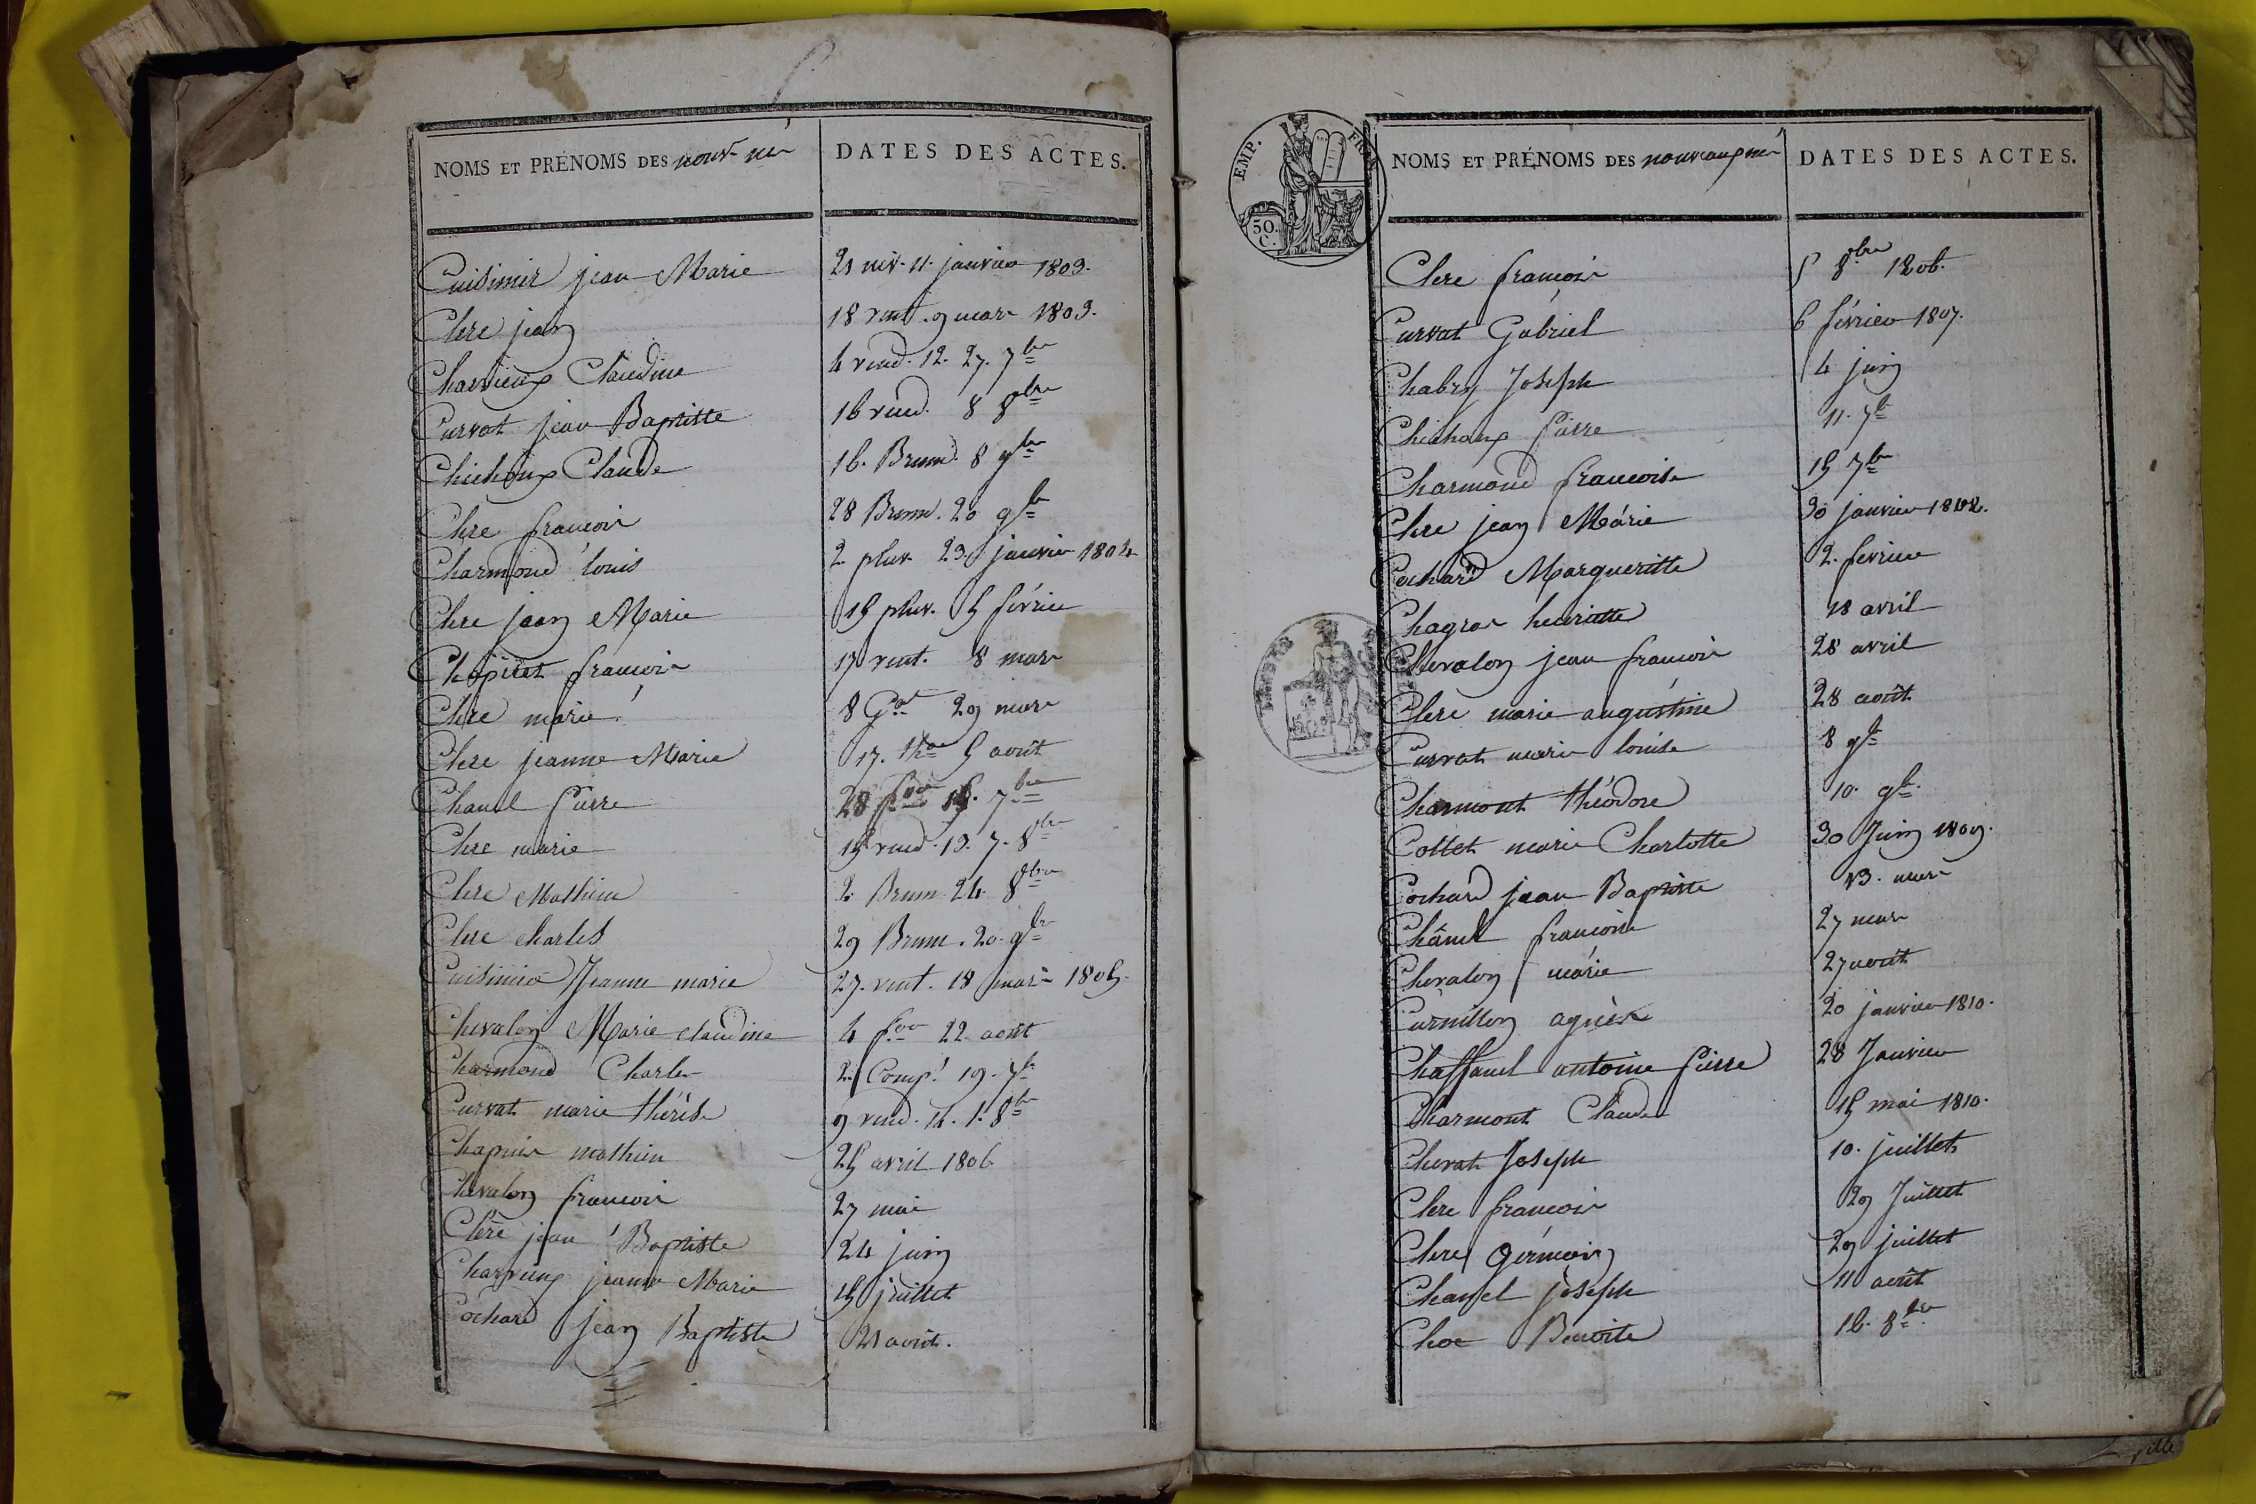 NOMS ET PRÉNOMS DES nouv. né DATES DES ACTES.
Cuisinier jean Marie 21 niv. 11. janvier 1803.
Clere jean 18 vent. 9 mars 1803.
Charvieux Claudine 4 vend. 12. 27. 7bre
Curvat jean Baptiste 16 vend. 8 8bre
Chichoux Claude 16. Brum. 8 9bre
Clere francois 28 Brum. 20 9bre
Charmond louis 2 pluv. 23. janvier 1804
Clere jean Marie 15 pluv. 5 février
francois 17 vent. 8 mars
Clere marie 8 Gal 29 mars
Clere jeanne Marie 17. thor 5 août
Chanel pierre 28 for 15. 7bre
Clere marie 15 vend. 13. 7. 8bre
Clere Mathieu 2 Brum. 24. 8bre
Clere charles 29 Brum. 20. 9bre
Cuisinier Jeanne marie 27. vent. 18 mars 1805.
Chevalon Marie claudine 4 for 22 août
Charmond Charles 2 Comp. 19. 7bre
Curvat marie thérèse 9 vend. 14. 1. 8bre
Chapuis mathieu 25 avril 1806
Chevalon francois 27 mai
Clere jean Baptiste 24 juin
Charvieux jeanne Marie 15 juillet
Cochard jean Baptiste 21 août.
EMP. FRAN
50. C.
NOMS ET PRÉNOMS DES nouveaux nés DATES DES ACTES.
Clere francois 5 8bre 1806.
Curvat Gabriel 6 février 1807.
Chabry Joseph 4 juin
Chichoux pierre 11. 7bre
Charmond francoise 15 7bre
Clere jean Marie 30 janvier 1808.
Cochard Margueritte 2. fevrier
Chagros henriette 18 avril
Chevalon jean francois 28 avril
Clere marie augustine 28 août
Curvat marie louise 8 9bre
Charmont théodore 10. 9bre
Collet marie Charlotte 30 Juin 1809.
Cochard jean Baptiste 13. mars
Chânel francoise 27 mars
Chevalon marie 27 août
Curnillon agnès 20 janvier 1810.
Chaffanel antoine pierre 28 Janvier
Charmont Claude 15 mai 1810.
Joseph 10. juillet
Clere francois 29 Juillet
Clere Germain 29 juillet
Chanel joseph 11 août
Benoite 16. 8bre